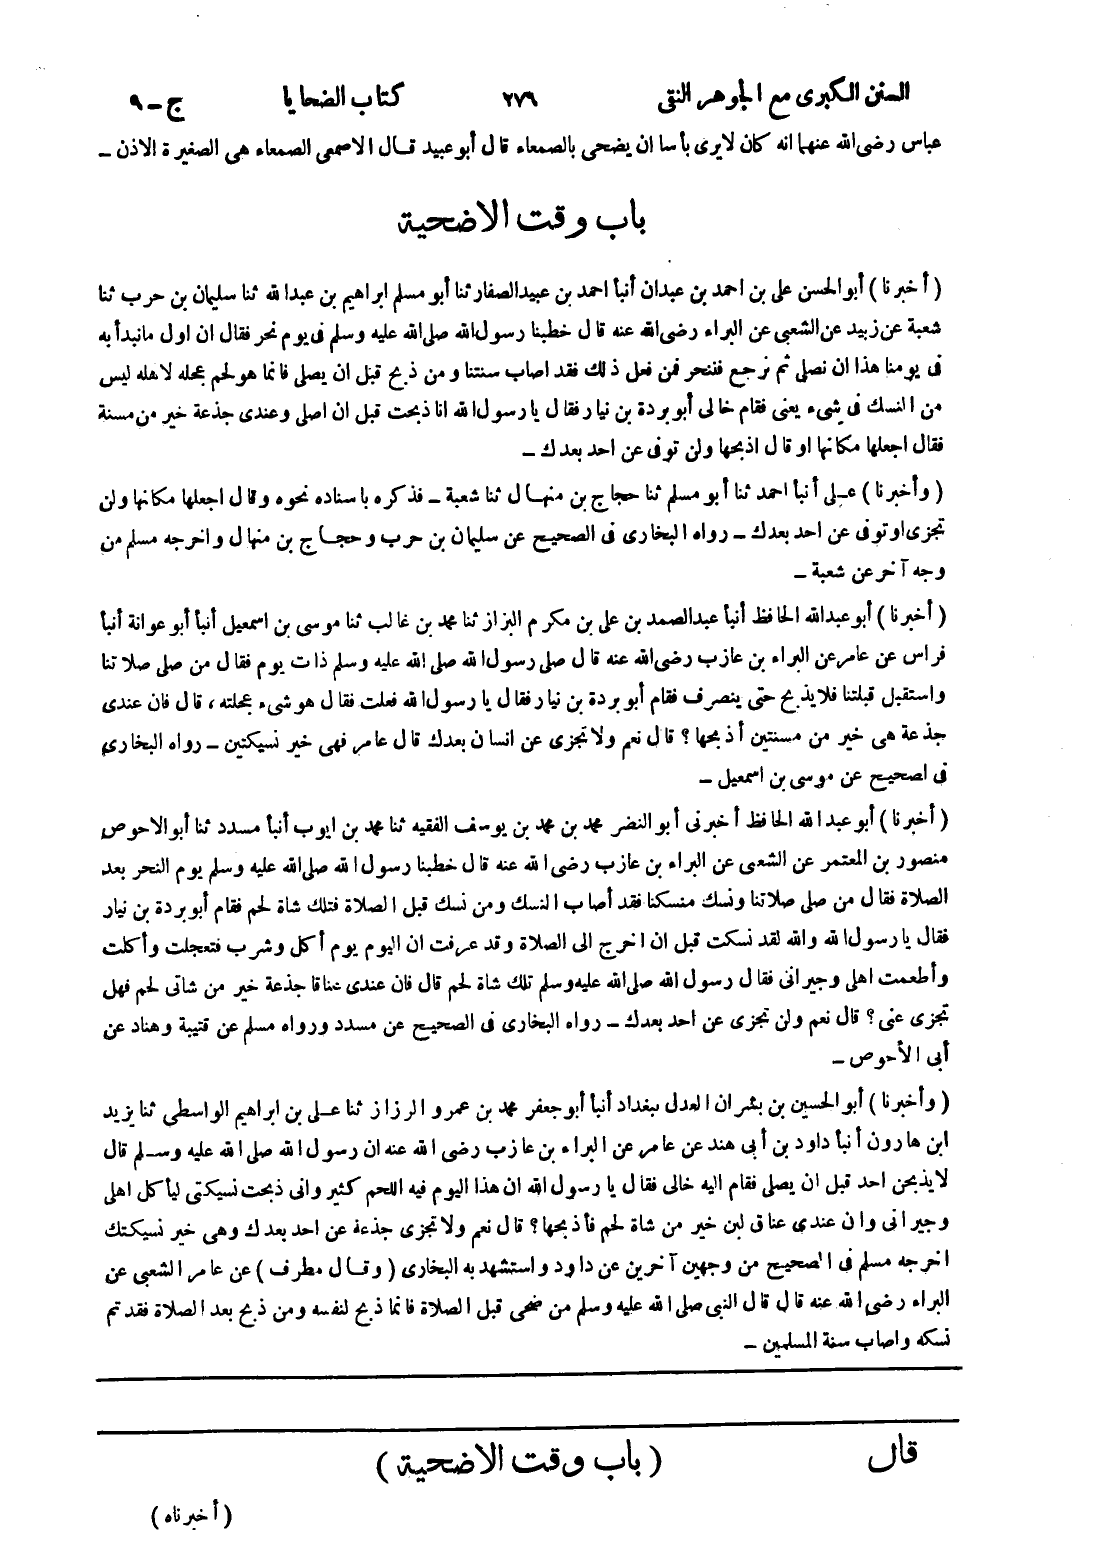 السنن الكبرى مع الجوهر النقى ٢٧٦ كتاب الضحايا ج ـ ٩
عباس رضى الله عنهما انه كان لايرى بأسا ان يضحى بالصمعاء قال أبو عبيد قال الاصمعى الصمعاء هى الصغيرة الاذن ـ
باب وقت الاضحية
( أخبرنا ) أبو الحسن على بن احمد بن عبدان أنبأ احمد بن عبيد الصفار ثنا أبو مسلم ابراهيم بن عبدالله ثنا سليمان بن حرب ثنا
شعبة عن زبيد عن الشعبى عن البراء رضى الله عنه قال خطبنا رسول الله صلى الله عليه وسلم فى يوم نحر فقال ان اول مانبدأ به
فى يومنا هذا ان نصلى ثم نرجع فننحر فمن فعل ذلك فقد اصاب سنتنا ومن ذبح قبل ان يصلى فانما هو لحم عجله لاهله ليس
من النسك فى شىء يعنى فقام خالى أبو بردة بن نيار فقال يا رسول الله انا ذبحت قبل ان اصلى وعندى جذعة خير من مسنة
فقال اجعلها مكانها او قال اذبحها ولن توفى عن احد بعدك ـ
( وأخبرنا ) على أنبأ احمد ثنا أبو مسلم ثنا حجاج بن منهال ثنا شعبة ـ فذكره باسناده نحوه وقال اجعلها مكانها ولن
تجزى او توفى عن احد بعدك ـ رواه البخارى فى الصحيح عن سليمان بن حرب وحجاج بن منهال واخرجه مسلم من
وجه آخر عن شعبة ـ
( أخبرنا ) أبو عبدالله الحافظ أنبأ عبدالصمد بن على بن مكرم البزاز ثنا محمد بن غالب ثنا موسى بن اسمعيل أنبأ أبو عوانة أنبأ
فراس عن عامر عن البراء بن عازب رضى الله عنه قال صلى رسول الله صلى الله عليه وسلم ذات يوم فقال من صلى صلاتنا
واستقبل قبلتنا فلايذبح حتى ينصرف فقام أبو بردة بن نيار فقال يا رسول الله فعلت فقال هو شىء عجلته ، قال فان عندى
جذعة هى خير من مسنتين أذبحها ؟ قال نعم ولا تجزى عن انسان بعدك قال عامر فهى خير نسيكتين ـ رواه البخارى
فى الصحيح عن موسى بن اسمعيل ـ
( أخبرنا ) أبو عبدالله الحافظ أخبرنى أبو النضر محمد بن محمد بن يوسف الفقيه ثنا محمد بن ايوب أنبأ مسدد ثنا أبو الاحوص
منصور بن المعتمر عن الشعبى عن البراء بن عازب رضى الله عنه قال خطبنا رسول الله صلى الله عليه وسلم يوم النحر بعد
الصلاة فقال من صلى صلاتنا ونسك منسكنا فقد أصاب النسك ومن نسك قبل الصلاة فتلك شاة لحم فقام أبو بردة بن نيار
فقال يا رسول الله والله لقد نسكت قبل ان اخرج الى الصلاة وقد عرفت ان اليوم يوم أكل وشرب فتعجلت وأكلت
وأطعمت اهلى وجيرانى فقال رسول الله صلى الله عليه وسلم تلك شاة لحم قال فان عندى عناقا جذعة خير من شاتى لحم فهل
تجزى عنى ؟ قال نعم ولن تجزى عن احد بعدك ـ رواه البخارى فى الصحيح عن مسدد ورواه مسلم عن قتيبة وهناد عن
أبى الأحوص ـ
( وأخبرنا ) أبو الحسين بن بشران العدل ببغداد أنبأ أبو جعفر محمد بن عمرو الرزاز ثنا على بن ابراهيم الواسطى ثنا يزيد
ابن هارون أنبأ داود بن أبى هند عن عامر عن البراء بن عازب رضى الله عنه ان رسول الله صلى الله عليه وسلم قال
لايذبحن احد قبل ان يصلى فقام اليه خالى فقال يا رسول الله ان هذا اليوم فيه اللحم كثير وانى ذبحت نسيكتى ليأكل اهلى
وجيرانى وان عندى عناق لبن خير من شاة لحم فأذبحها ؟ قال نعم ولا تجزى جذعة عن احد بعدك وهى خير نسيكتك
اخرجه مسلم فى الصحيح من وجهين آخرين عن داود واستشهد به البخارى ( وقال مطرف ) عن عامر الشعبى عن
البراء رضى الله عنه قال قال النبى صلى الله عليه وسلم من ضحى قبل الصلاة فانما ذبح لنفسه ومن ذبح بعد الصلاة فقد تم
نسكه واصاب سنة المسلمين ـ
قال ( باب وقت الاضحية )
( أخبرناه )